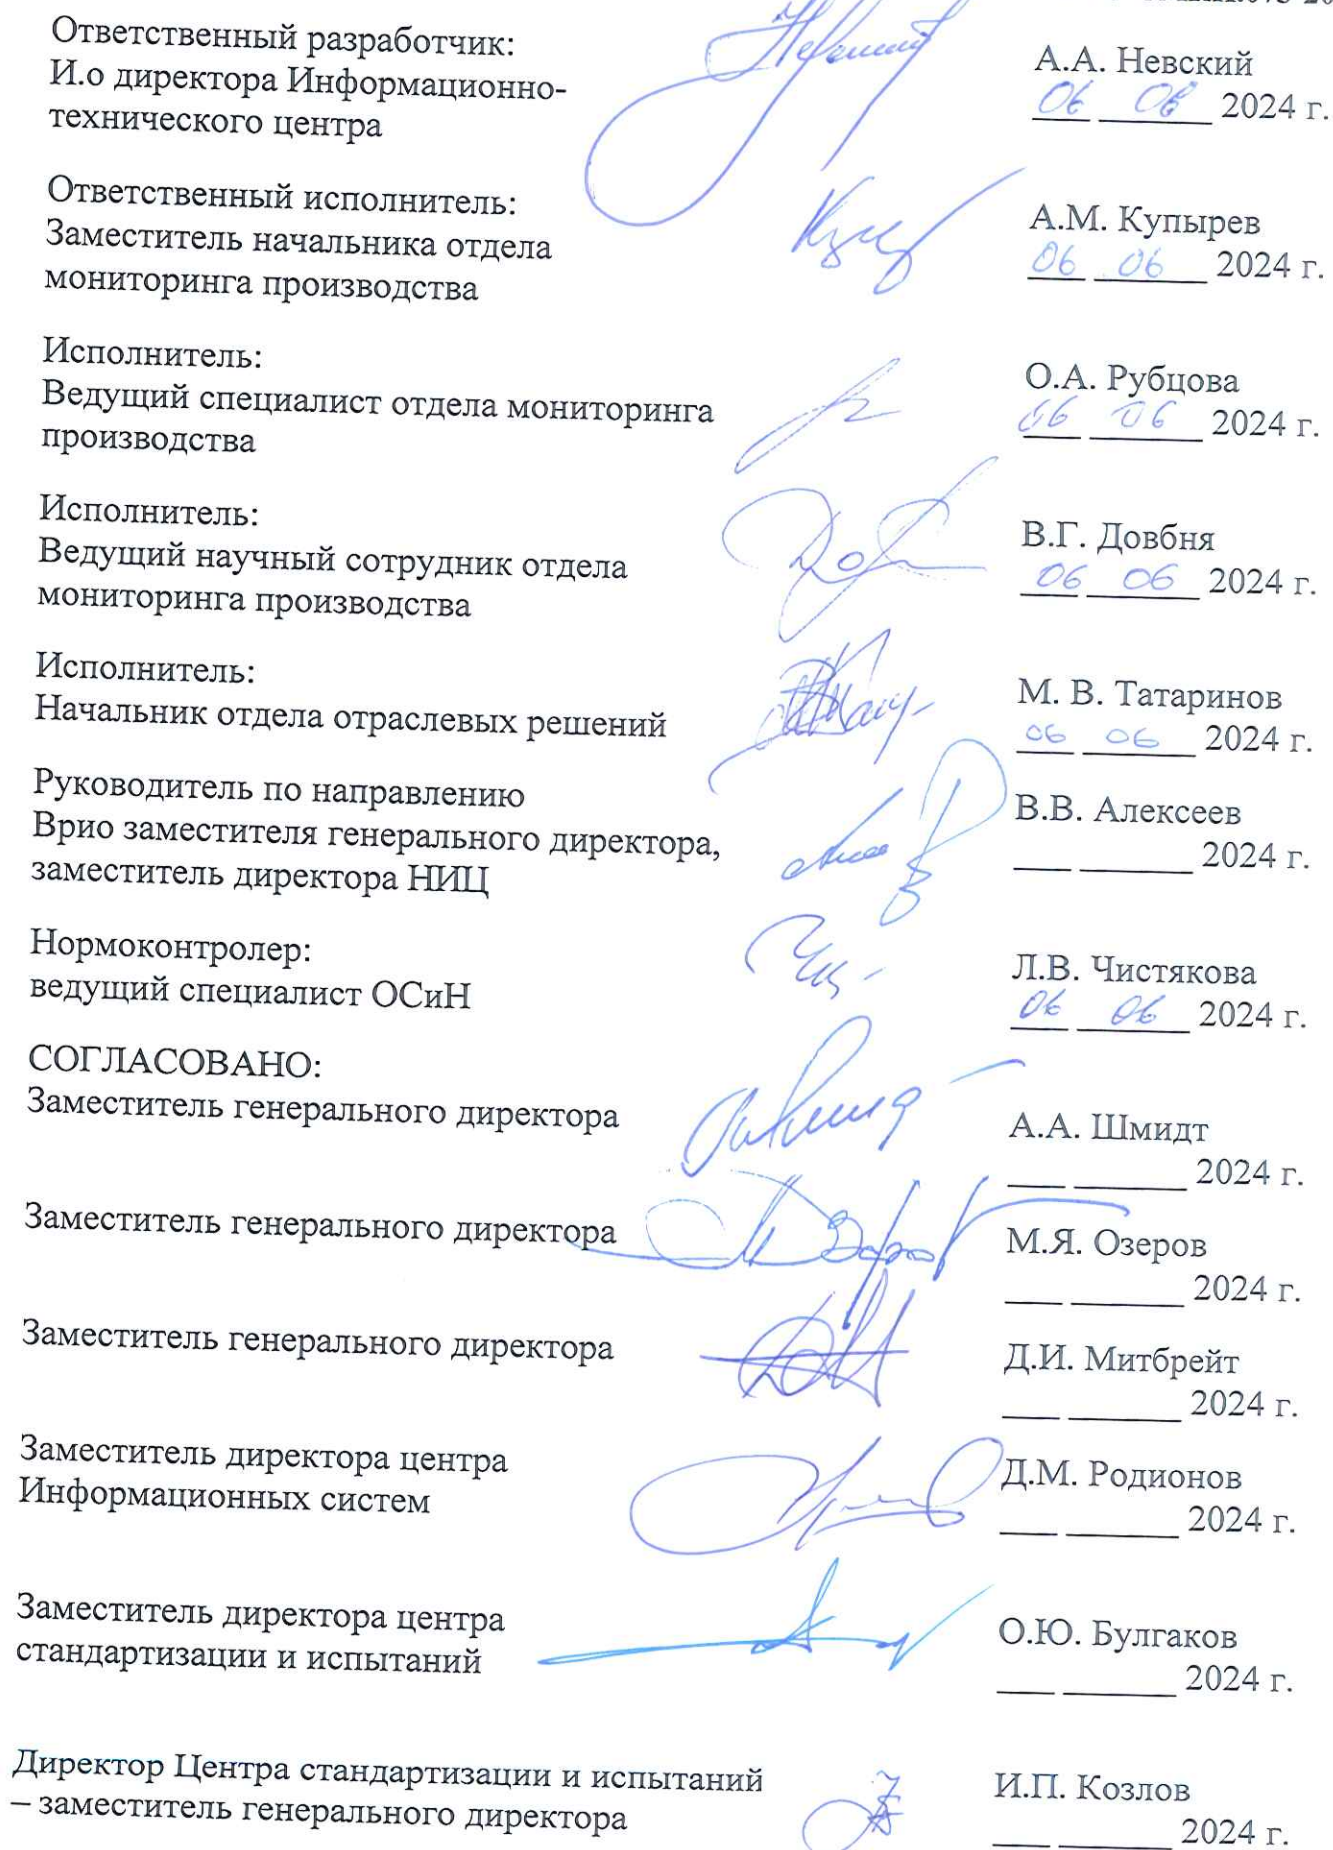 Ответственный разработчик:
И.о директора Информационно-
технического центра
А.А. Невский
06 06 2024 г.
Ответственный исполнитель:
Заместитель начальника отдела
мониторинга производства
А.М. Купырев
06 06 2024 г.
Исполнитель:
Ведущий специалист отдела мониторинга
производства
О.А. Рубцова
06 06 2024 г.
Исполнитель:
Ведущий научный сотрудник отдела
мониторинга производства
В.Г. Довбня
06 06 2024 г.
Исполнитель:
Начальник отдела отраслевых решений
М. В. Татаринов
06 06 2024 г.
Руководитель по направлению
Врио заместителя генерального директора,
заместитель директора НИЦ
В.В. Алексеев
___ ______ 2024 г.
Нормоконтролер:
ведущий специалист ОСиН
Л.В. Чистякова
06 06 2024 г.
СОГЛАСОВАНО:
Заместитель генерального директора
А.А. Шмидт
___ ______ 2024 г.
Заместитель генерального директора
М.Я. Озеров
___ ______ 2024 г.
Заместитель генерального директора
Д.И. Митбрейт
___ ______ 2024 г.
Заместитель директора центра
Информационных систем
Д.М. Родионов
___ ______ 2024 г.
Заместитель директора центра
стандартизации и испытаний
О.Ю. Булгаков
___ ______ 2024 г.
Директор Центра стандартизации и испытаний
– заместитель генерального директора
И.П. Козлов
___ ______ 2024 г.